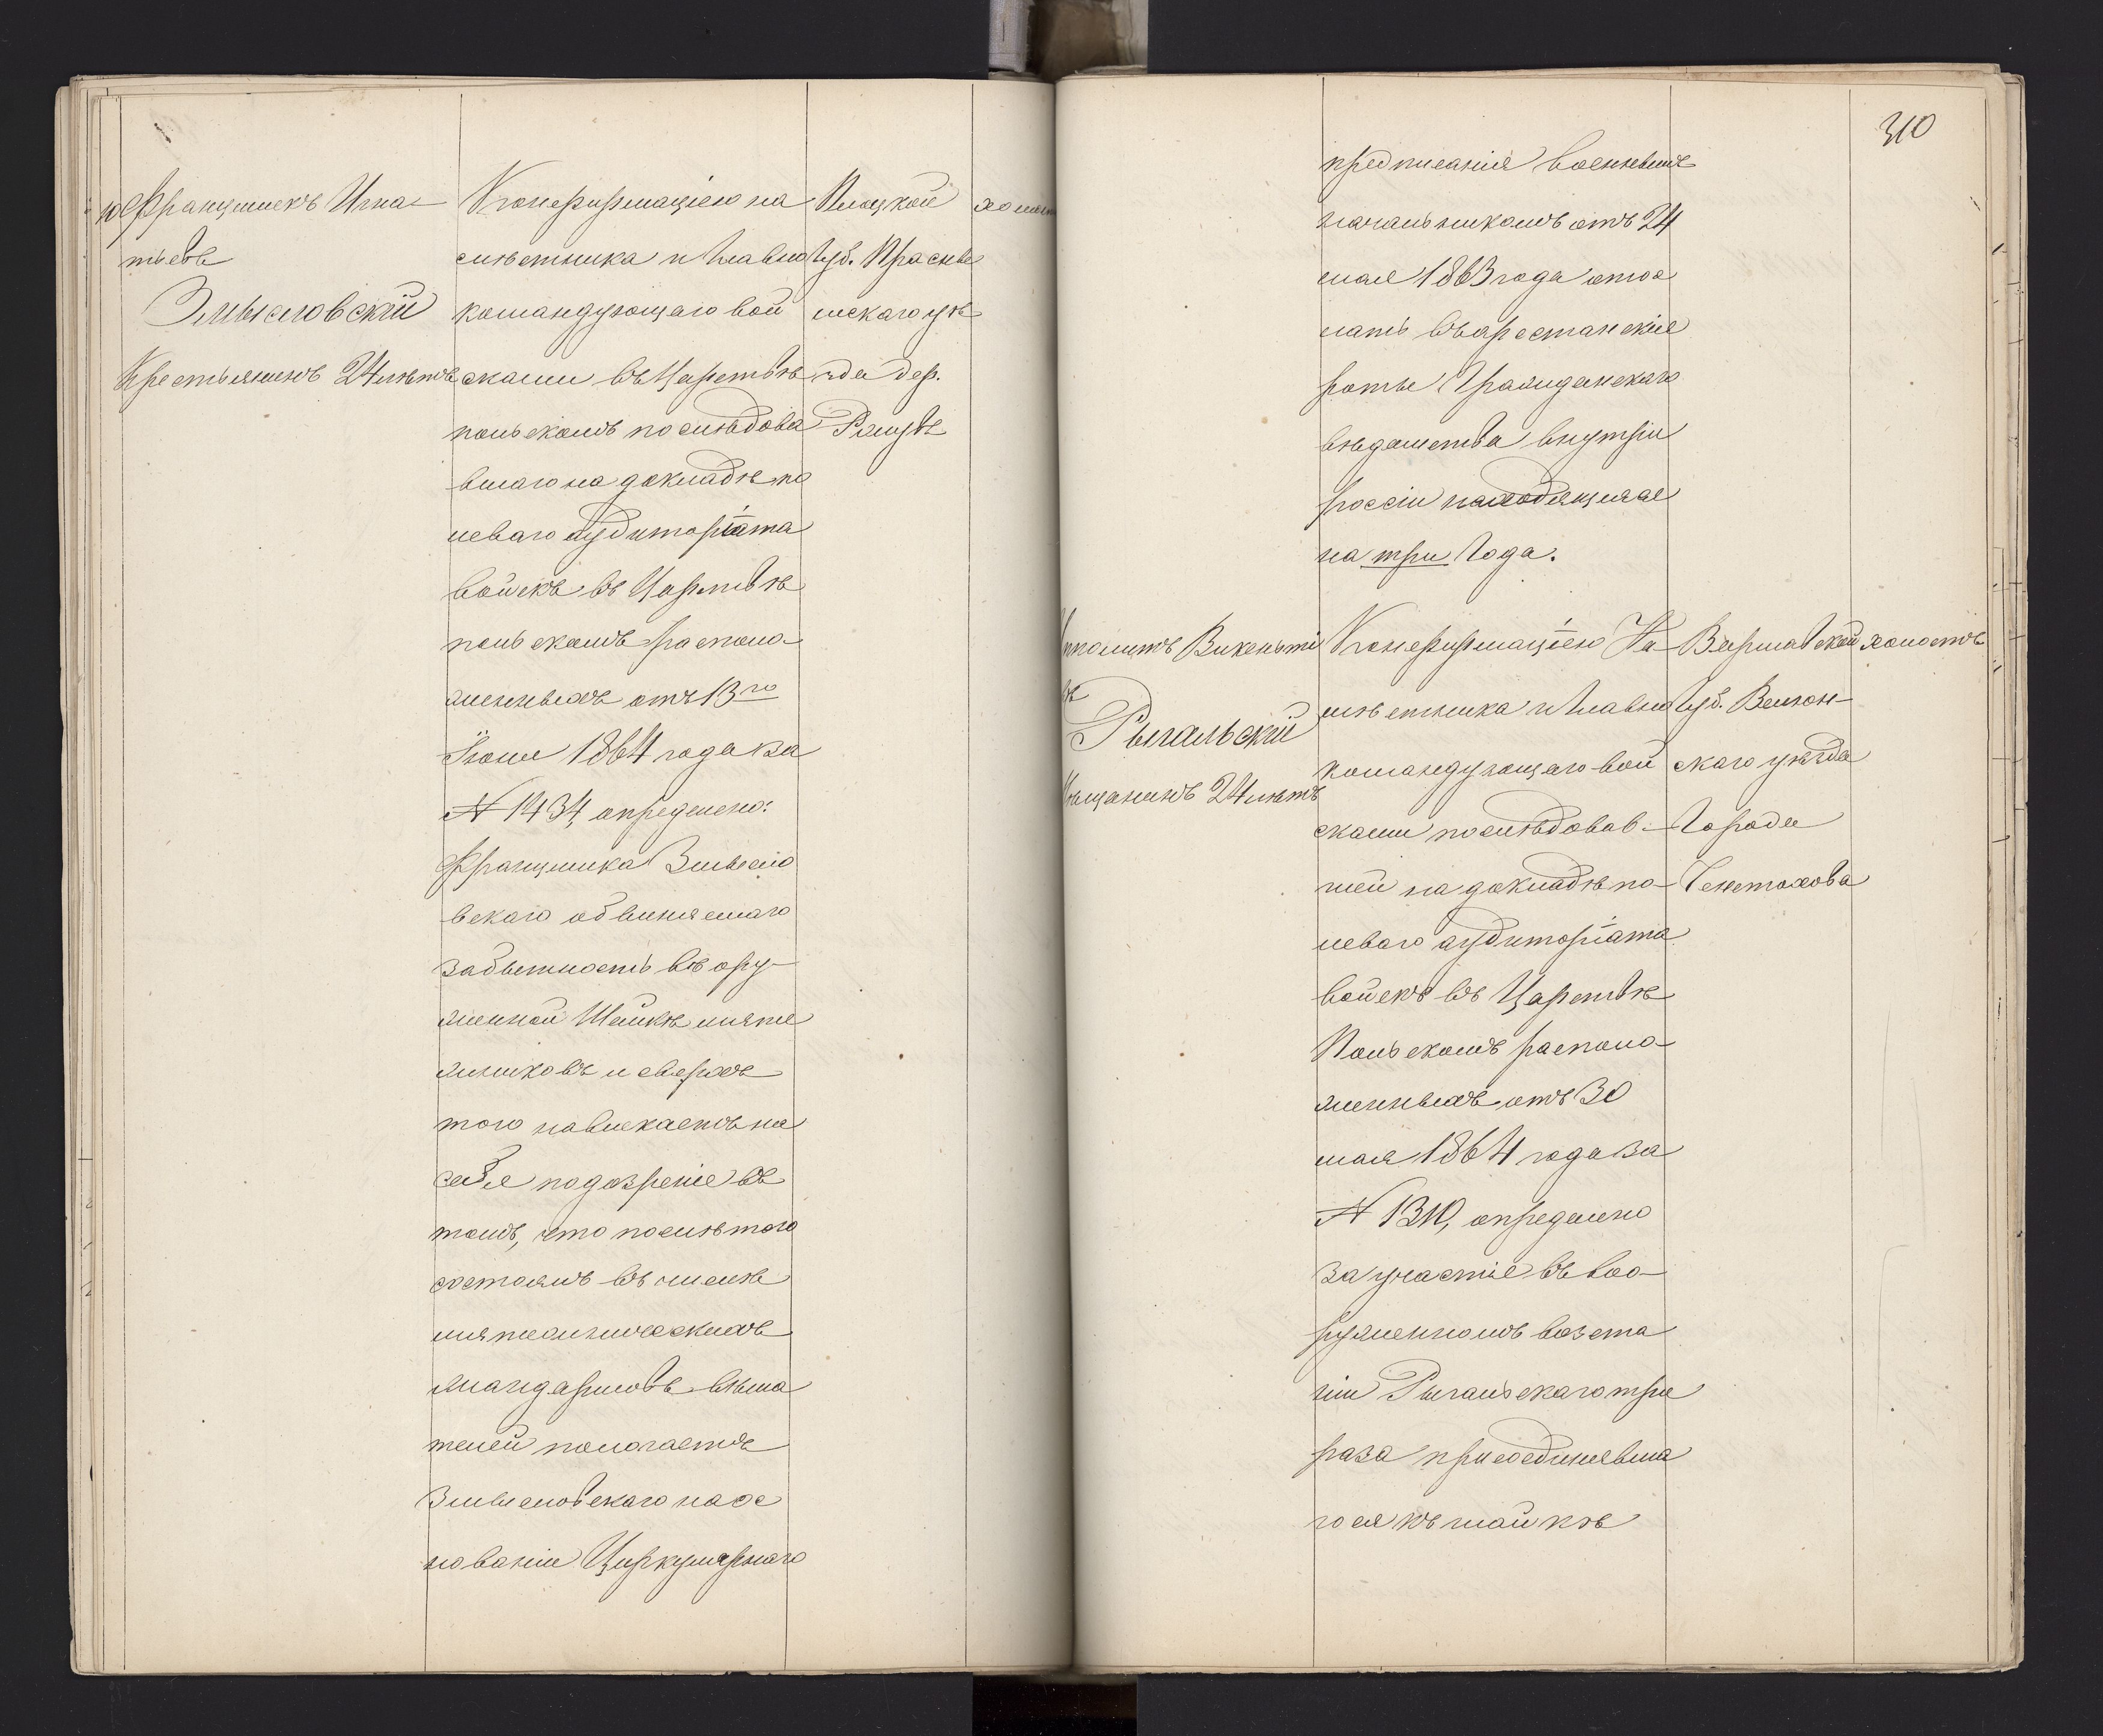 Францишекъ Игна-
тьевъ
Змысловскій
Крестьянинъ 24 летъ
Конфирмаціею на
местника и Главно
командующаго вой
сками въ Царстве
польскомъ последова
вшаго на докладе по
леваго аудиторіата
войскъ въ Царстве
польскомъ располо-
женныхъ отъ 13го
Іюня 1864 года за
N 1434, определено:
Францишка Змысло
вскаго обвиняемаго
за бытность въ ору-
женной Шайке мяте
жниковъ и сверхъ
того навлекаетъ на
себя подозреніе въ
томъ, что после того
состоялъ въ числе
мятежническихъ
жандармовъ веша
телей полагаетъ
Змысловскаго на ос
нованіи Циркулярнаго
Плоцкой
Губ. Прасны
шскаго уе
зда дер.
холост
310
предписанія военнымъ
начальникомъ отъ 24
мая 1863 года отос
лать въ арестанскія
роты Гражданскаго
ведомства внутри
россіи находящіяся
на три Года.
Ипполитъ Викенті
въ
Рыгальскій
Мещанинъ 24 летъ
Конфирмаціею На-
местника и Главно
командующаго вой
сками последовав-
шей на докладе по-
леваго аудиторіата
войскъ въ Царстве
Польскомъ располо-
женныхъ отъ 30
мая 1864 года за
N 1310, определено
за участіе въ воо-
руженномъ возста
ніи Рыгальскаго три
раза присоединявша
гося къ шайке
Варшавской
Губ. Велюн-
скаго уезда
Города
Ченстохова
холостъ